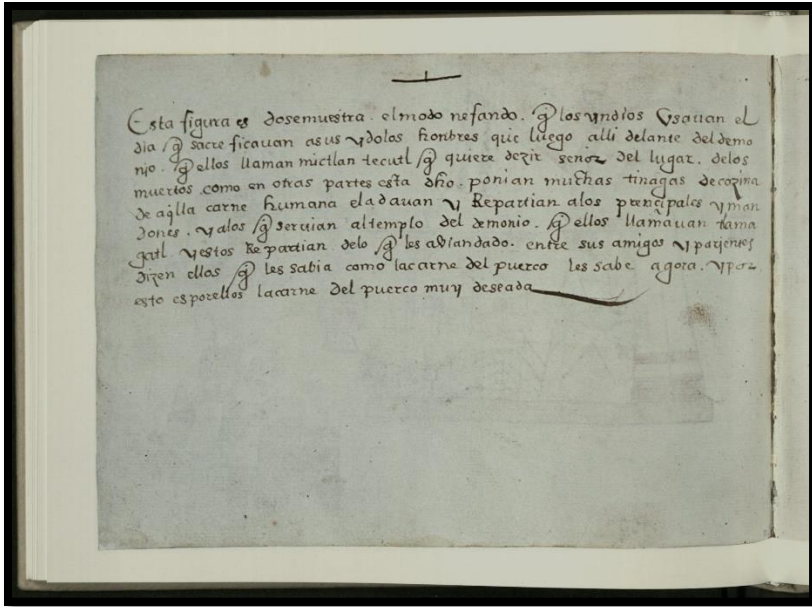 Esta figura es dosemuestra. elmodo nefando. q̃ los yndios vsauan el
dia q̃ sacre ficauan asus ydolos honbres que luego alli delante del demo
nio. q̃ ellos llaman mictlan tecutl q̃ quiere dezir señor del lugar. delos
muertos como en otras partes esta dho. ponian muchas tinagas decozina
de aq̃lla carne humana eladauan y Repartian alos prencipales yman
dones. yalos q̃ seruian altemplo del demonio. q̃ ellos llamauan tlama
gatl. yestos Repartian delo q̃ les entre sus amigos yparientes
dizen ellos q̃ les sabia como lacarne del puerco les sabe agora. ypor
esto esporellos lacarne del puerco muy deseada